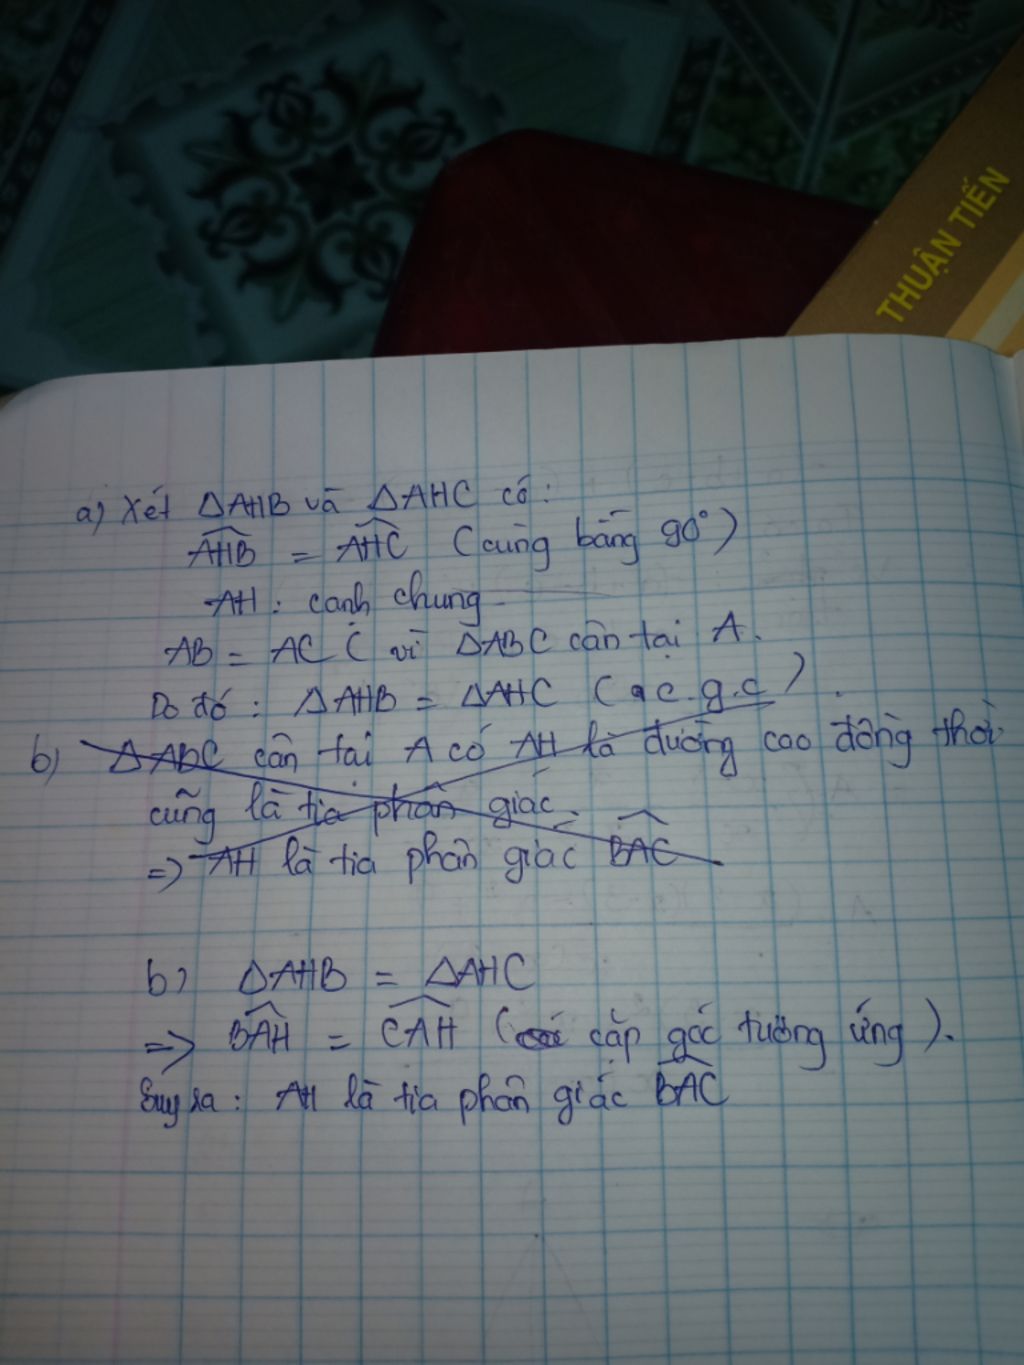 THUẬN TIẾN
a) Xét ΔAHB và ΔAHC có:
AHB = AHC (cùng bằng 90°)
AH: cạnh chung
AB = AC ( vì ΔABC cân tại A.
Do đó: ΔAHB = ΔAHC ( c.g.c ).
b) ΔABC cân tại A có AH là đường cao đồng thời
cũng là tia phân giác.
=> AH là tia phân giác BAC
b) ΔAHB = ΔAHC
=> BAH = CAH ( cặp góc tương ứng ).
Suy ra: AH là tia phân giác BAC